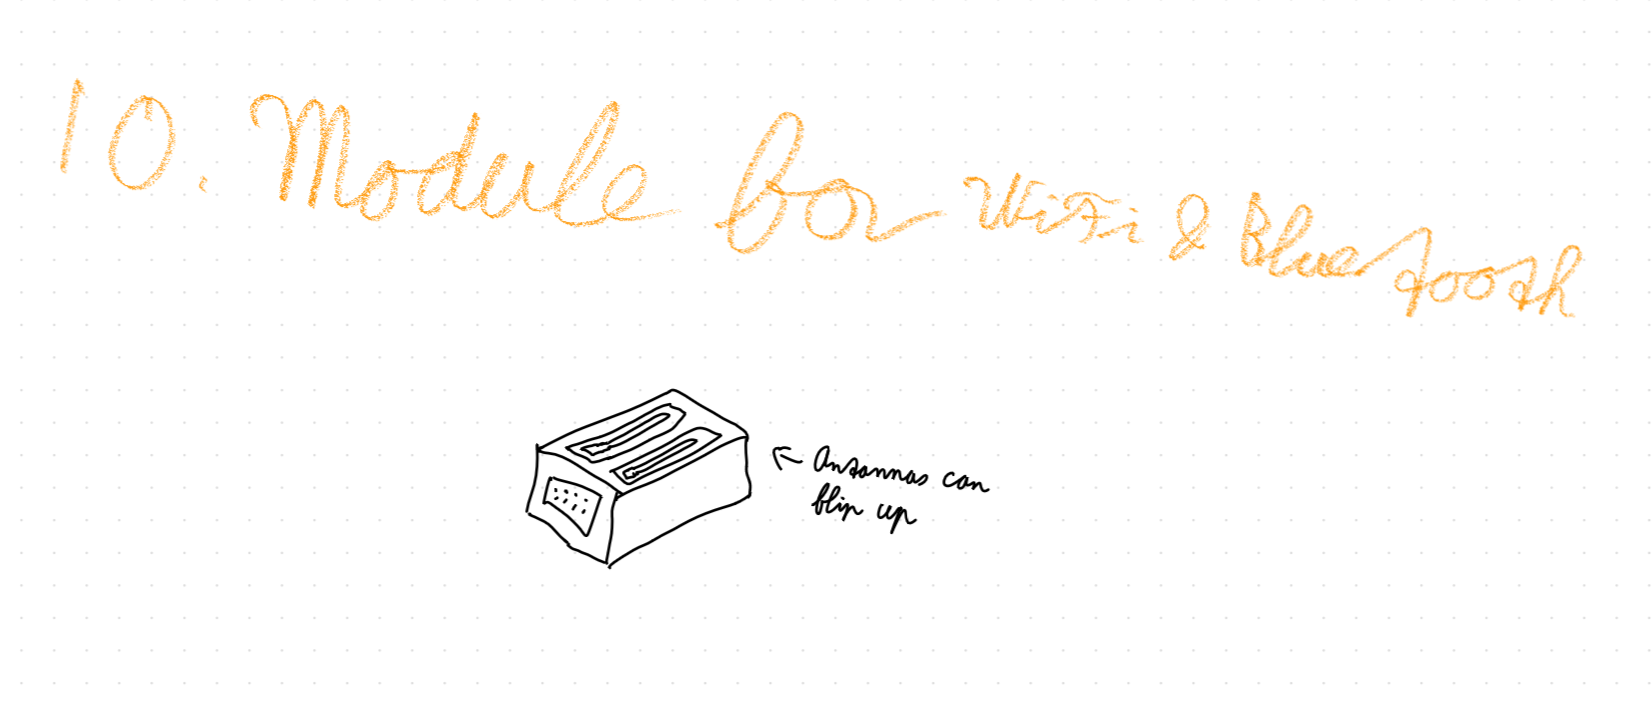 10. Module for WiFi & Bluetooth
Antannas can
flip up